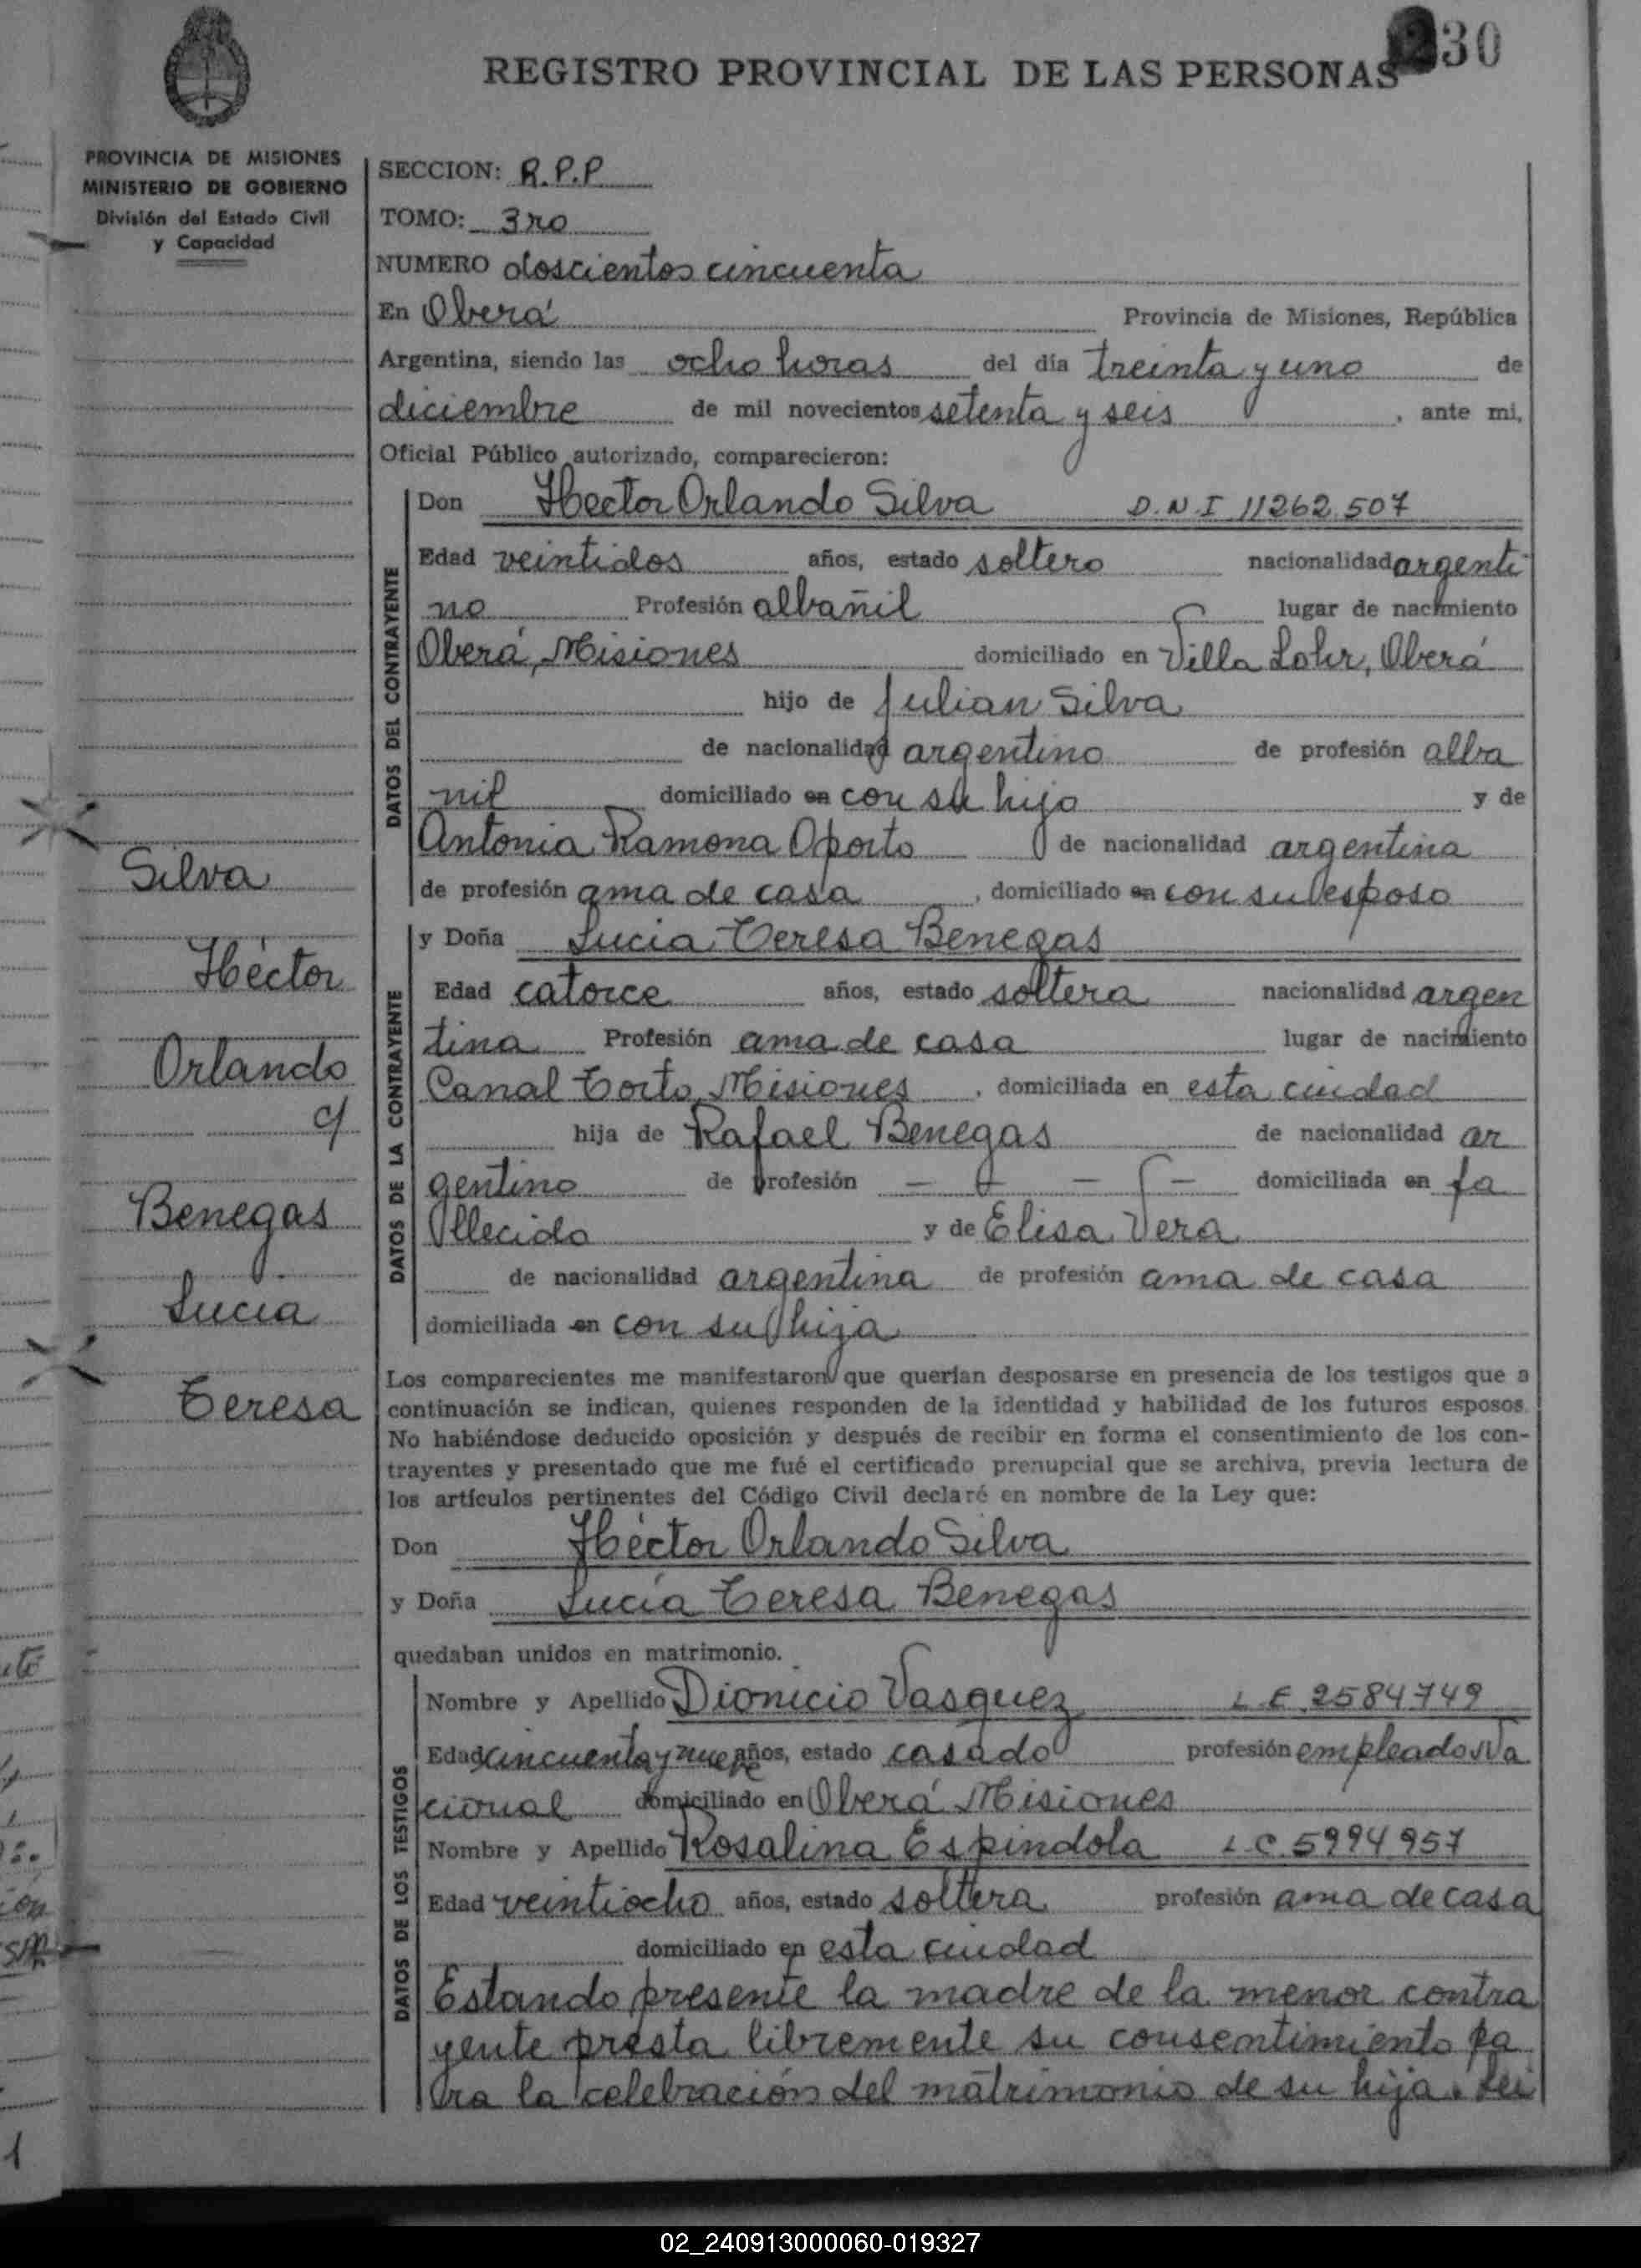 30
REGISTRO PROVINCIAL DE LAS PERSONAS
PROVINCIA DE MISIONES
MINISTERIO DE GOBIERNO
División del Estado Civil
y Capacidad
SECCION: R.P.P
TOMO: 3ro
NUMERO doscientos cincuenta
En Oberá Provincia de Misiones, República
Argentina, siendo las ocho horas del día treinta y uno de
diciembre de mil novecientos setenta y seis, ante mi,
Oficial Público autorizado, comparecieron:
DATOS DEL CONTRAYENTE
Don Hector Orlando Silva D.N.I 11262.507
Edad veintidos años, estado soltero nacionalidad argenti
no Profesión albañil lugar de nacimiento
Oberá, Misiones domiciliado en Villa Lohr, Oberá
hijo de Julian Silva
de nacionalidad argentino de profesión alba
nil domiciliado en con su hijo y de
Antonia Ramona Oporto de nacionalidad argentina
de profesión ama de casa, domiciliado en con su esposo
DATOS DE LA CONTRAYENTE
y Doña Lucia Teresa Benegas
Edad catorce años, estado soltera nacionalidad argen
tina Profesión ama de casa lugar de nacimiento
Canal Torto, Misiones, domiciliada en esta ciudad
hija de Rafael Benegas de nacionalidad ar
gentino de profesión - - - - domiciliada en fa
llecido y de Elisa Vera
de nacionalidad argentina de profesión ama de casa
domiciliada en con su hija
Silva
Héctor
Orlando
c/
Benegas
Lucia
Teresa
Los comparecientes me manifestaron que querían desposarse en presencia de los testigos que a
continuación se indican, quienes responden de la identidad y habilidad de los futuros esposos.
No habiéndose deducido oposición y después de recibir en forma el consentimiento de los con-
trayentes y presentado que me fué el certificado prenupcial que se archiva, previa lectura de
los artículos pertinentes del Código Civil declaré en nombre de la Ley que:
Don Héctor Orlando Silva
y Doña Lucía Teresa Benegas
quedaban unidos en matrimonio.
DATOS DE LOS TESTIGOS
Nombre y Apellido Dionicio Vasquez L.E 2584749
Edad cincuenta y nueve años, estado casado profesión empleado Na
cional domiciliado en Oberá Misiones
Nombre y Apellido Rosalina Espindola L.C. 5994957
Edad veintiocho años, estado soltera profesión ama de casa
domiciliado en esta ciudad
Estando presente la madre de la menor contra
yente presta libremente su consentimiento pa
ra la celebración del matrimonio de su hija. Lei
02_240913000060-019327